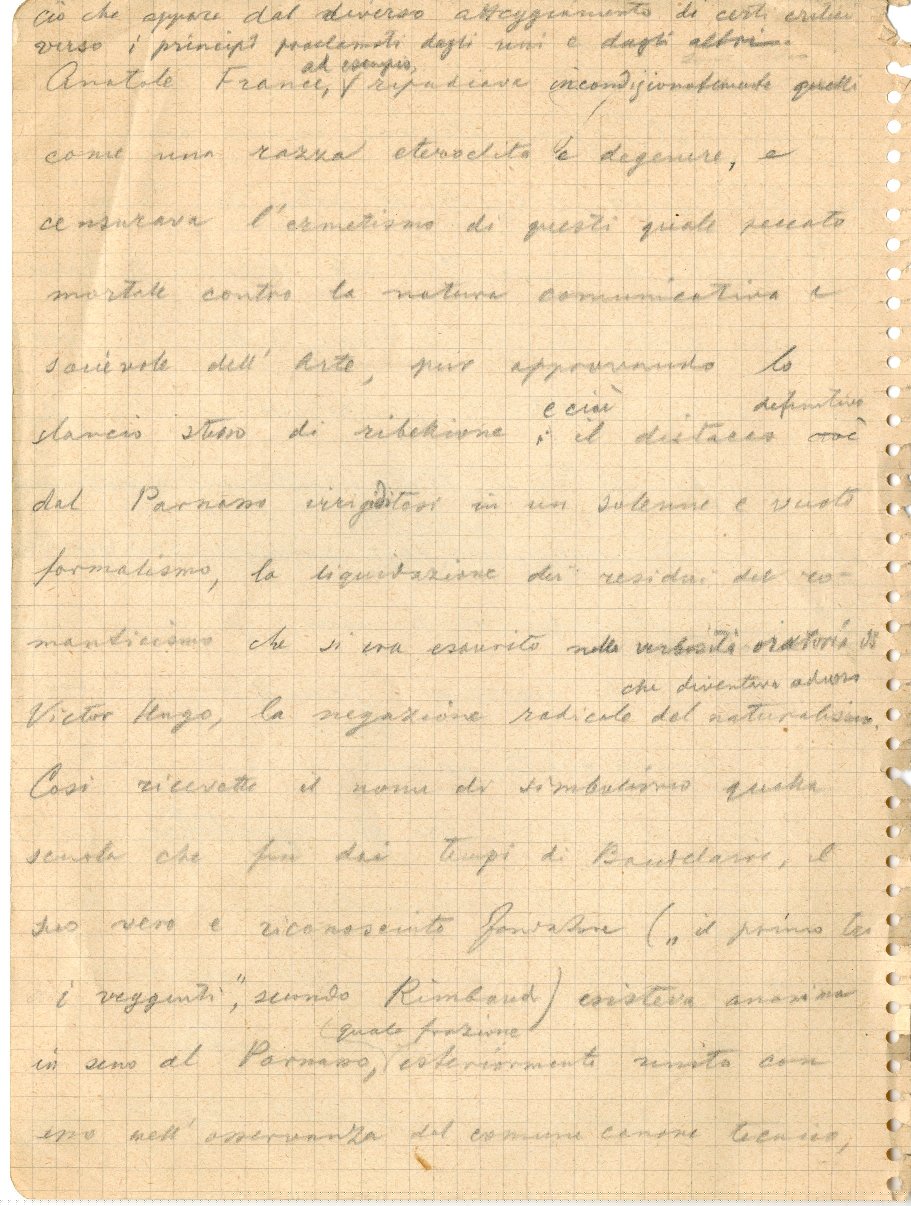 ciò che appare dal diverso atteggiamento di certi critici
verso i principî proclamati dagli uni e dagli altri.
ad esempio,
Anatole France, ripudiava incondizionatamente quelli
come una razza eteroclita e degenere, e
censurava l'ermetismo di questi quale peccato
mortale contro la natura comunicativa e
socievole dell'Arte, pur approvando lo
e cioè definitivo
slancio stesso di ribellione ; il distacco cioè
dal Parnasso irrigiditosi in un solenne e vuoto
formalismo, la liquidazione dei residui del ro-
manticismo che si era esaurito nella verbosità oratoria di
che diventava
Victor Hugo, la negazione radicale del naturalismo.
Così ricevette il nome di simbolismo quella
scuola che fin dai tempi di Baudelaire, il
suo vero e riconosciuto fondatore („il primo tra
i veggenti", secondo Rimbaud) esisteva anonima
(quale frazione
in seno al Parnasso, esteriormente unita con
esso nell'osservanza del comune canone tecnico,